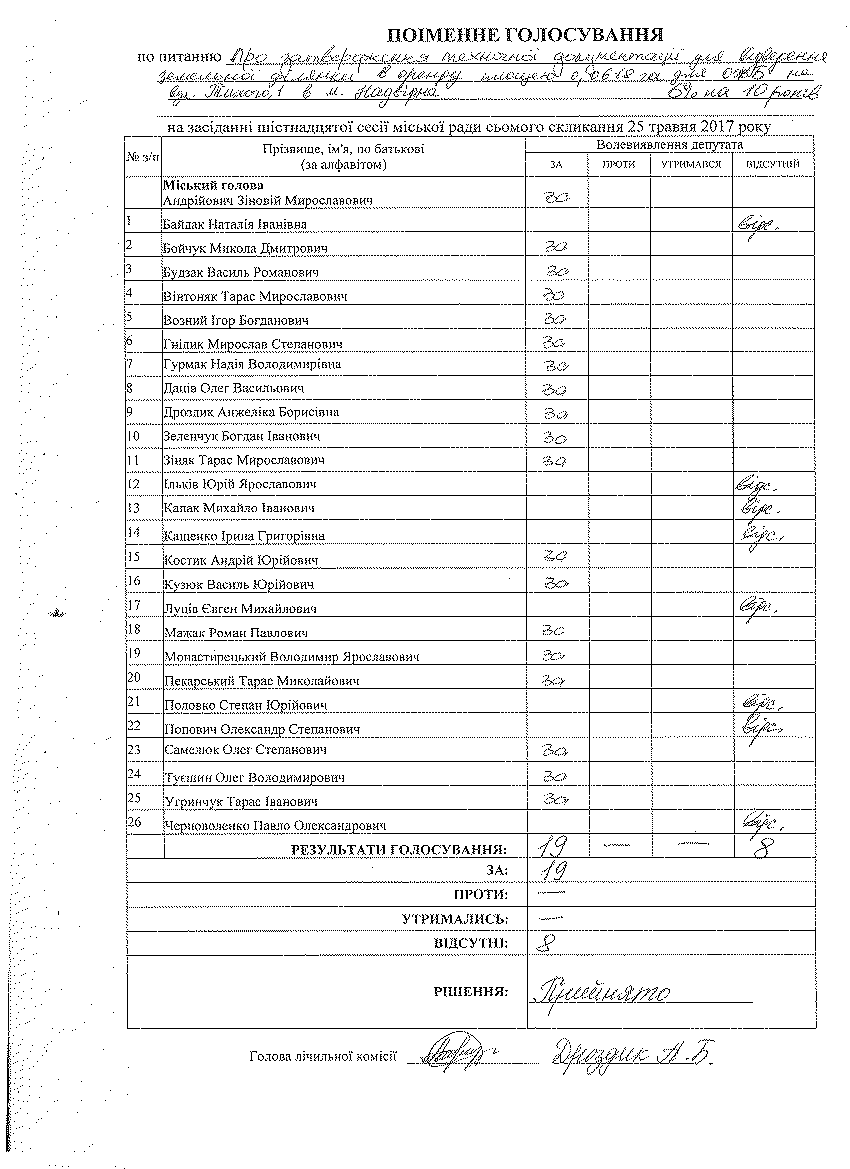 ПОІМЕННЕ ГОЛОСУВАННЯ
по питанню Про затвердження технічної документації для відведення
земельної ділянки в оренду площею 0,0618 га для ОЖБ на
вул. Тихого, 1 в м. Надвірна 5% на 10 років
на засіданні шістнадцятої сесії міської ради сьомого скликання 25 травня 2017 року
№ з/п Прізвище, ім'я, по батькові (за алфавітом) Волевиявлення депутата
ЗА ПРОТИ УТРИМАВСЯ ВІДСУТНІЙ
Міський голова
Андрійович Зіновій Мирославович за
1 Байдак Наталія Іванівна відс.
2 Бойчук Микола Дмитрович за
3 Будзак Василь Романович за
4 Вінтоняк Тарас Мирославович за
5 Возний Ігор Богданович за
6 Гнідик Мирослав Степанович за
7 Гурмак Надія Володимирівна за
8 Даців Олег Васильович за
9 Дроздик Анжеліка Борисівна за
10 Зеленчук Богдан Іванович за
11 Зіняк Тарас Мирославович за
12 Ільків Юрій Ярославович відс.
13 Капак Михайло Іванович відс.
14 Кащенко Ірина Григорівна відс.
15 Костик Андрій Юрійович за
16 Кузюк Василь Юрійович за
17 Луців Євген Михайлович відс.
18 Мажак Роман Павлович за
19 Монастирецький Володимир Ярославович за
20 Пекарський Тарас Миколайович за
21 Половко Степан Юрійович відс.
22 Попович Олександр Степанович відс.
23 Самелюк Олег Степанович за
24 Туєшин Олег Володимирович за
25 Угринчук Тарас Іванович за
26 Черноволенко Павло Олександрович відс.
РЕЗУЛЬТАТИ ГОЛОСУВАННЯ: 19 — — 8
ЗА: 19
ПРОТИ: —
УТРИМАЛИСЬ: —
ВІДСУТНІ: 8
РІШЕННЯ: Прийнято
Голова лічильної комісії Дроздик А.Б.